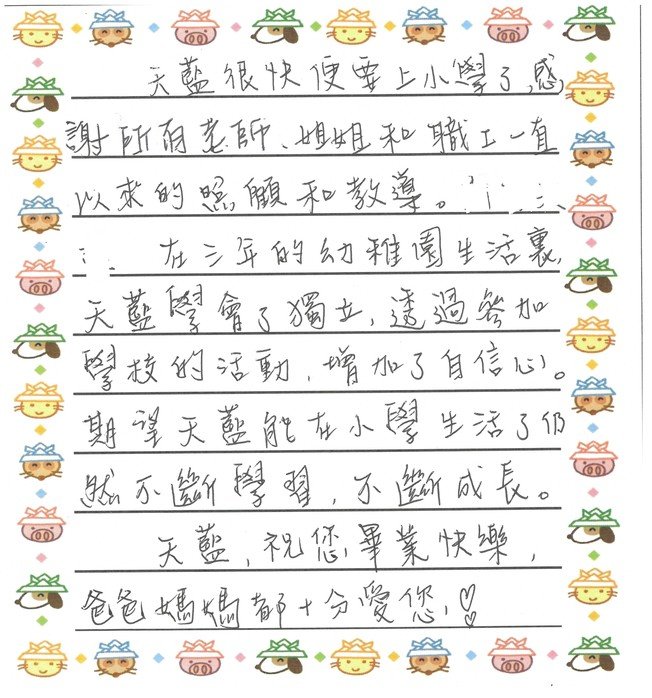 天藍很快便要上小學了,感
謝所有老師、姐姐和職工一直
以來的照顧和教導。
在三年的幼稚園生活裏,
天藍學會了獨立,透過參加
學校的活動,增加了自信心。
期望天藍能在小學生活了仍
然不斷學習,不斷成長。
天藍,祝您畢業快樂,
爸爸媽媽都十分愛您!♡